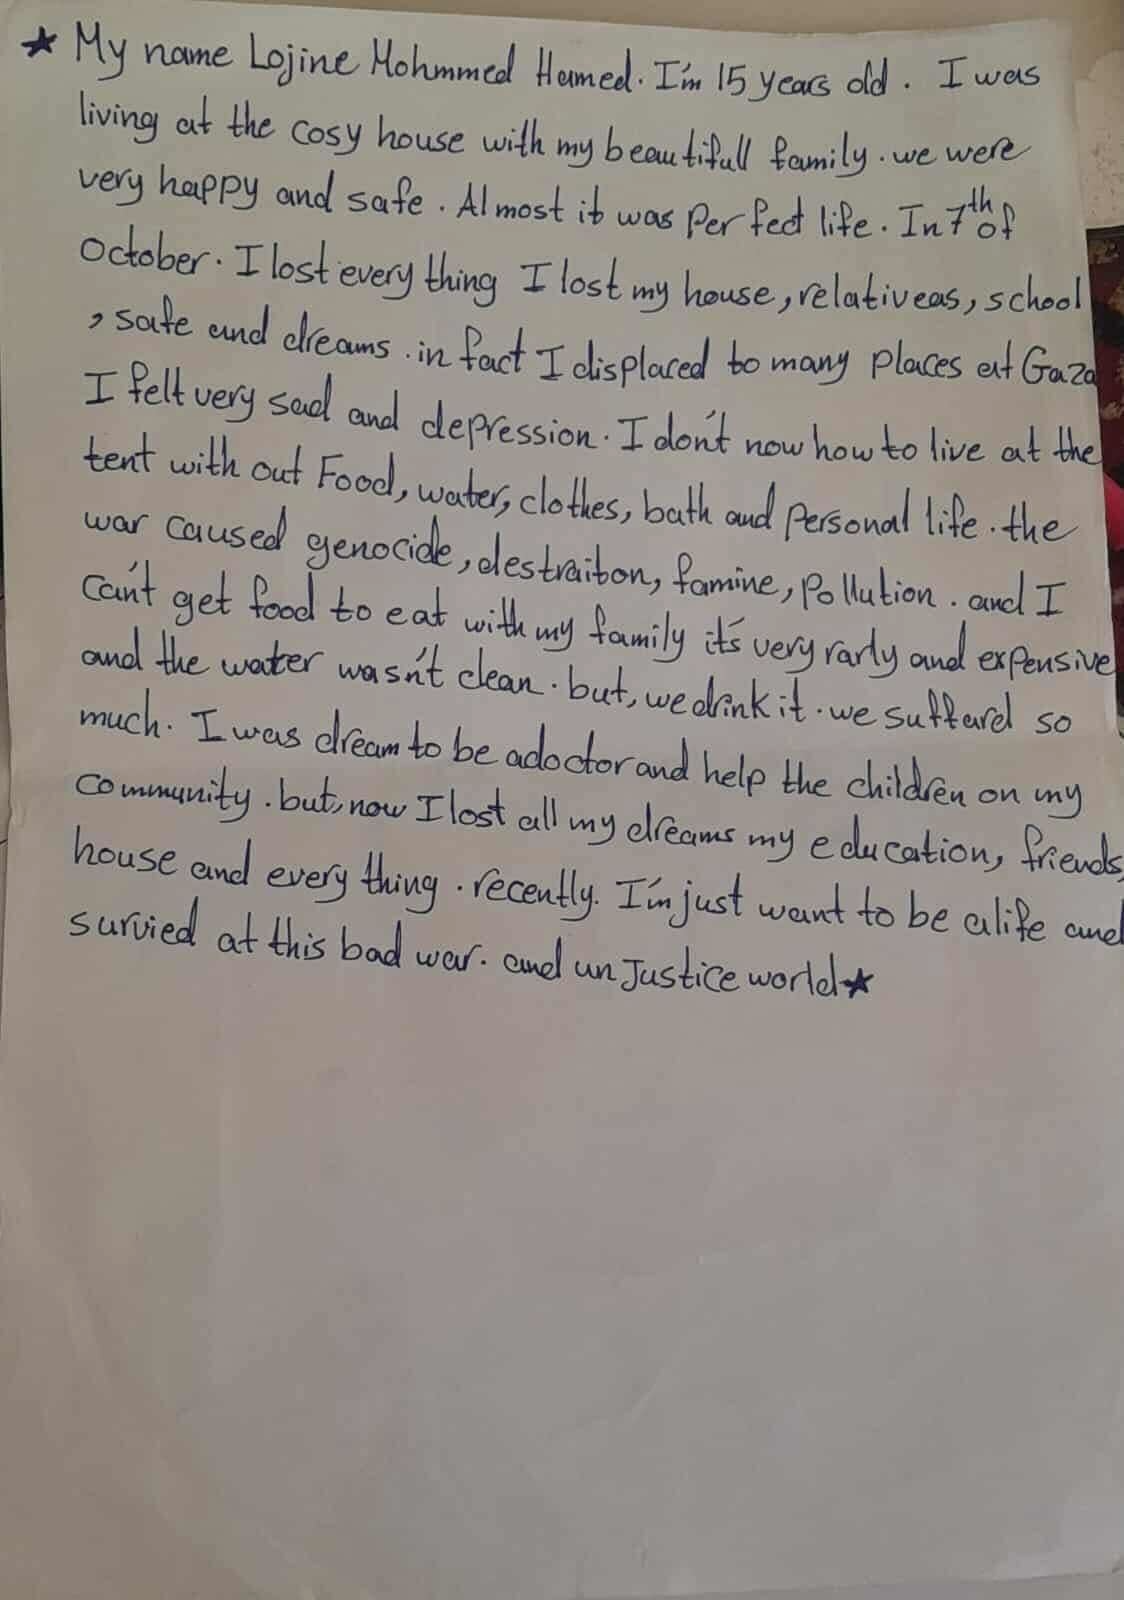 ★ My name Lojine Mohmmed Hamed. I'm 15 years old. I was
living at the cosy house with my beautifull family. we were
very happy and safe. Almost it was perfect life. In 7th of
October. I lost every thing I lost my house, relativeas, school
, safe and dreams. in fact I displaced to many places at Gaza
I felt very sad and depression. I don't now how to live at the
tent with out Food, water, clothes, bath and personal life. the
war caused genocide, destraiton, famine, pollution. and I
can't get food to eat with my family it's very rarly and expensive
and the water wasn't clean. but, we drink it. we suffard so
much. I was dream to be adoctor and help the children on my
community. but, now I lost all my dreams my education, friends,
house and every thing. recently. I'm just want to be alife and
survied at this bad war. and unjustice world ★